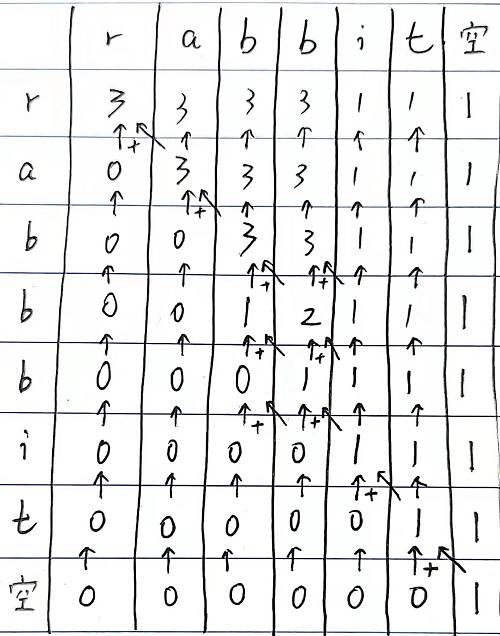 r a b b i t 空
r 3 3 3 3 1 1 1
↑+↖ ↑ ↑ ↑ ↑ ↑
a 0 3 3 3 1 1 1
↑ ↑+↖ ↑ ↑ ↑ ↑
b 0 0 3 3 1 1 1
↑ ↑ ↑+↖ ↑+↖ ↑ ↑
b 0 0 1 2 1 1 1
↑ ↑ ↑+↖ ↑+↖ ↑ ↑
b 0 0 0 1 1 1 1
↑ ↑ ↑+↖ ↑+↖ ↑ ↑
i 0 0 0 0 1 1 1
↑ ↑ ↑ ↑ ↑+↖ ↑
t 0 0 0 0 0 1 1
↑ ↑ ↑ ↑ ↑ ↑+↖
空 0 0 0 0 0 0 1